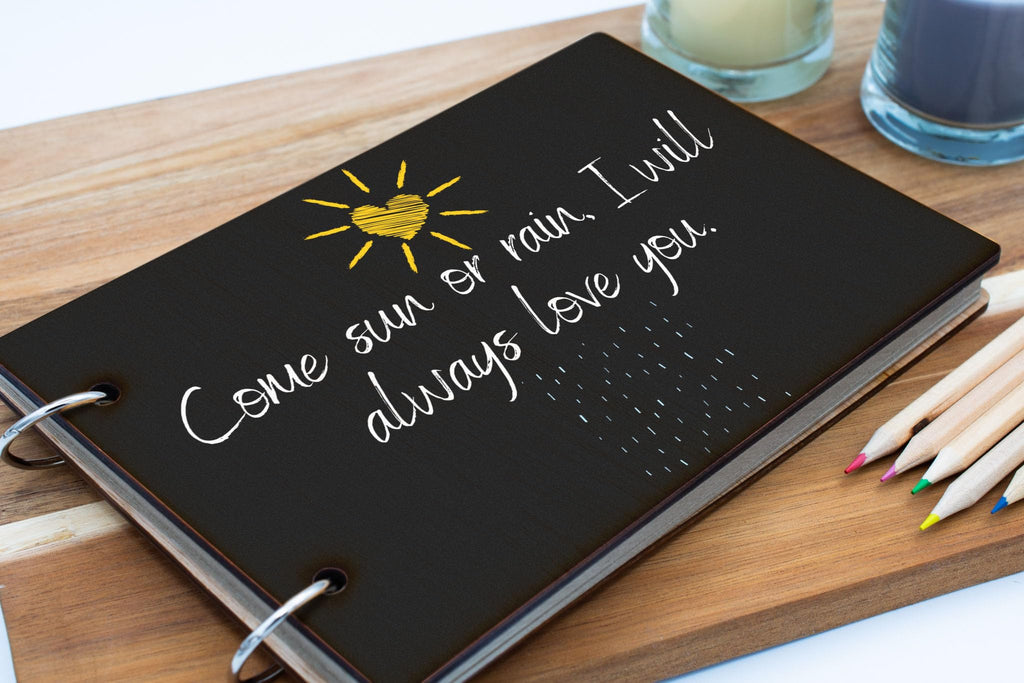 Come sun or rain, I will
always love you.